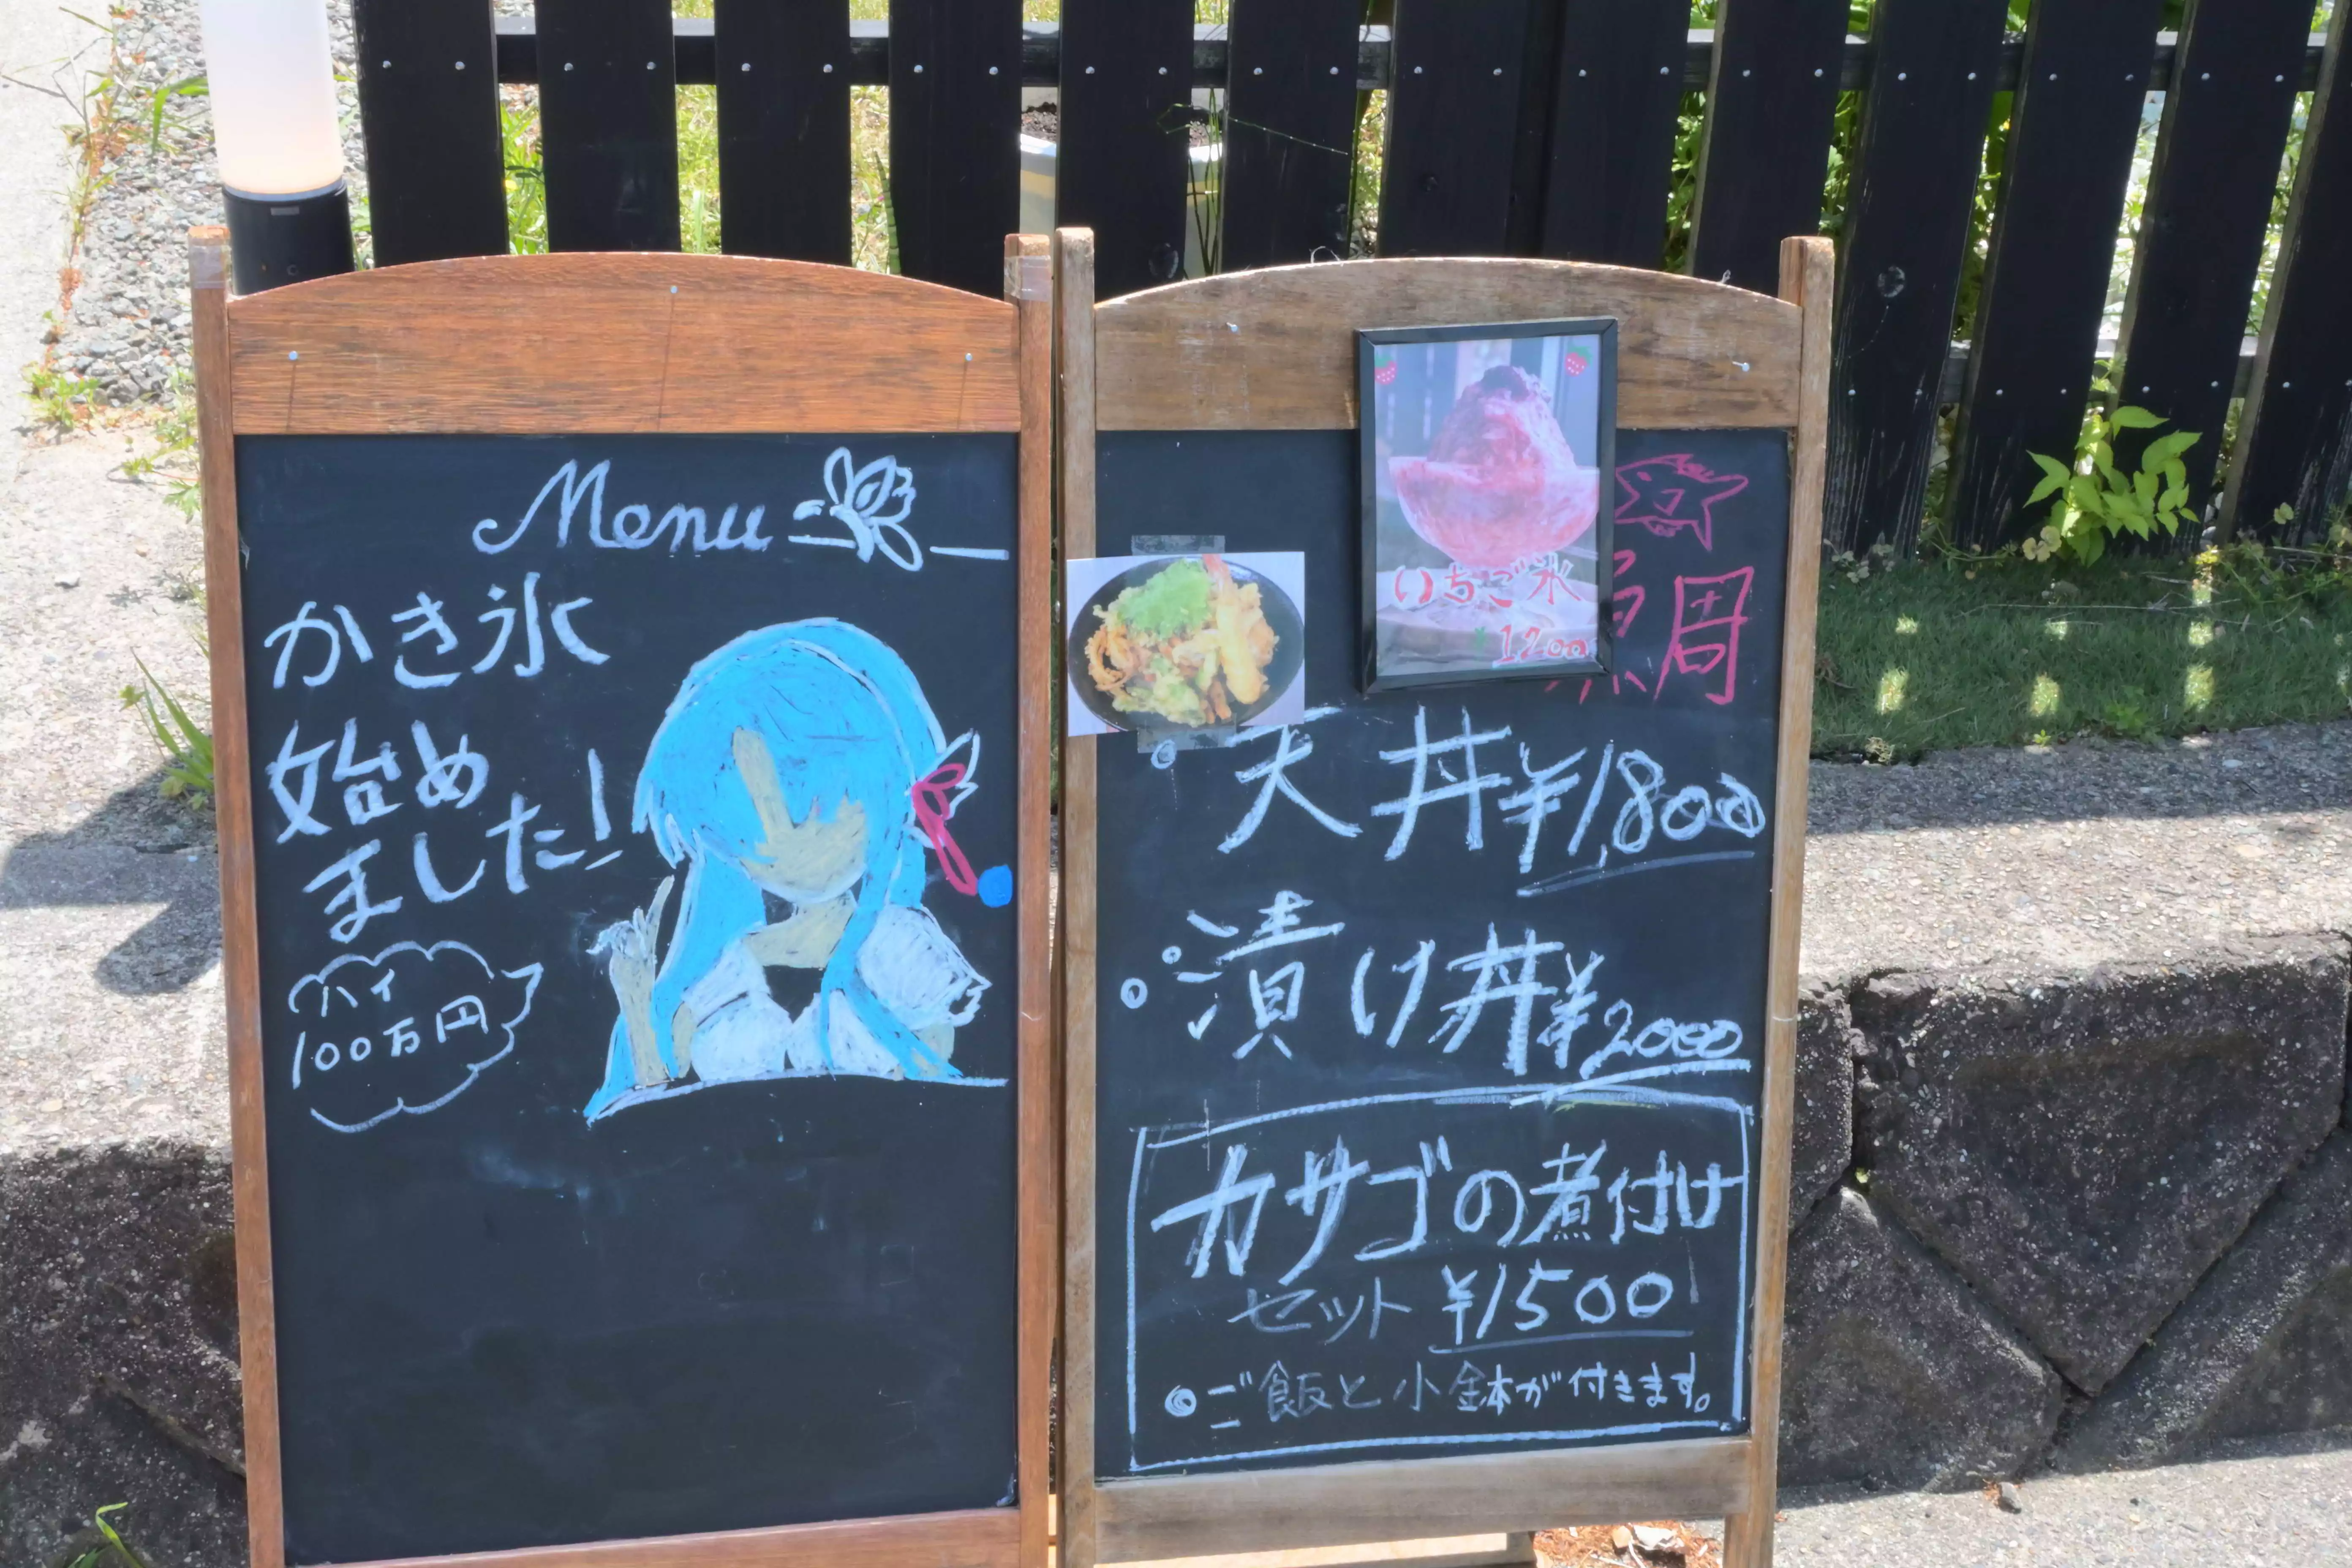 Menu
かき氷
始め
ました!
ハイ
100万円
いちご氷
¥1200
鯛
天丼¥1,800
漬け丼¥2000
カサゴの煮付け
セット ¥1500
ご飯と小鉢が付きます。